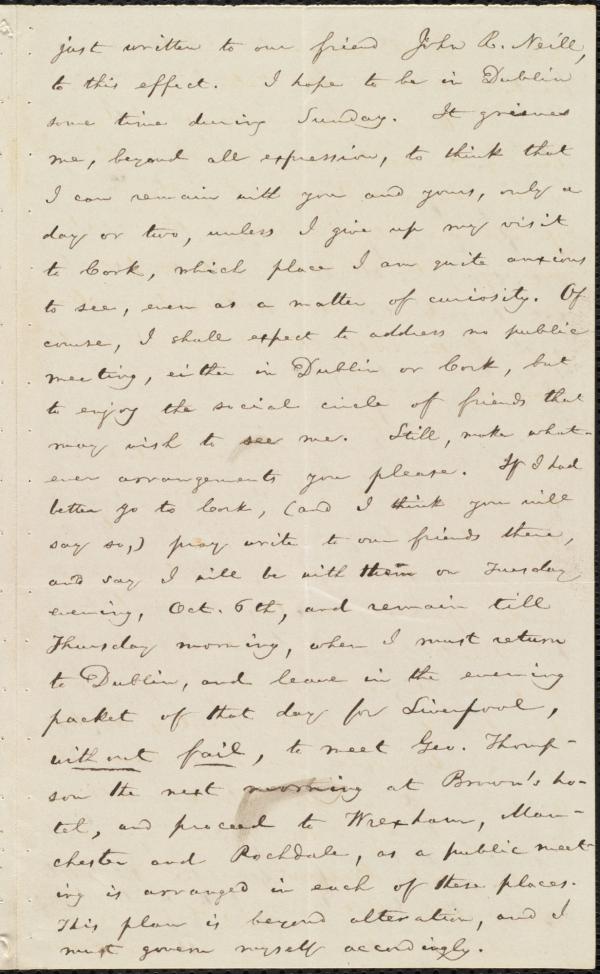 just written to our friend John R. Neill,
to this effect. I hope to be in Dublin
some time during Sunday. It grieves
me, beyond all expression, to think that
I can remain with you and yours, only a
day or two, unless I give up my visit
to Cork, which place I am quite anxious
to see, even as a matter of curiosity. Of
course, I shall expect to address no public
meeting, either in Dublin or Cork, but
to enjoy the social circle of friends that
may wish to see me. Still, make what-
ever arrangements you please. If I had
better go to Cork, (and I think you will
say so,) pray write to our friends there,
and say I will be with them on Tuesday
evening, Oct. 6th, and remain till
Thursday morning, when I must return
to Dublin, and leave in the evening
packet of that day for Liverpool,
without fail, to meet Geo. Thomp-
son the next morning at Brown's ho-
tel, and proceed to Wrexham, Man-
chester and Rochdale, as a public meet-
ing is arranged in each of these places.
This plan is beyond alteration, and I
must govern myself accordingly.